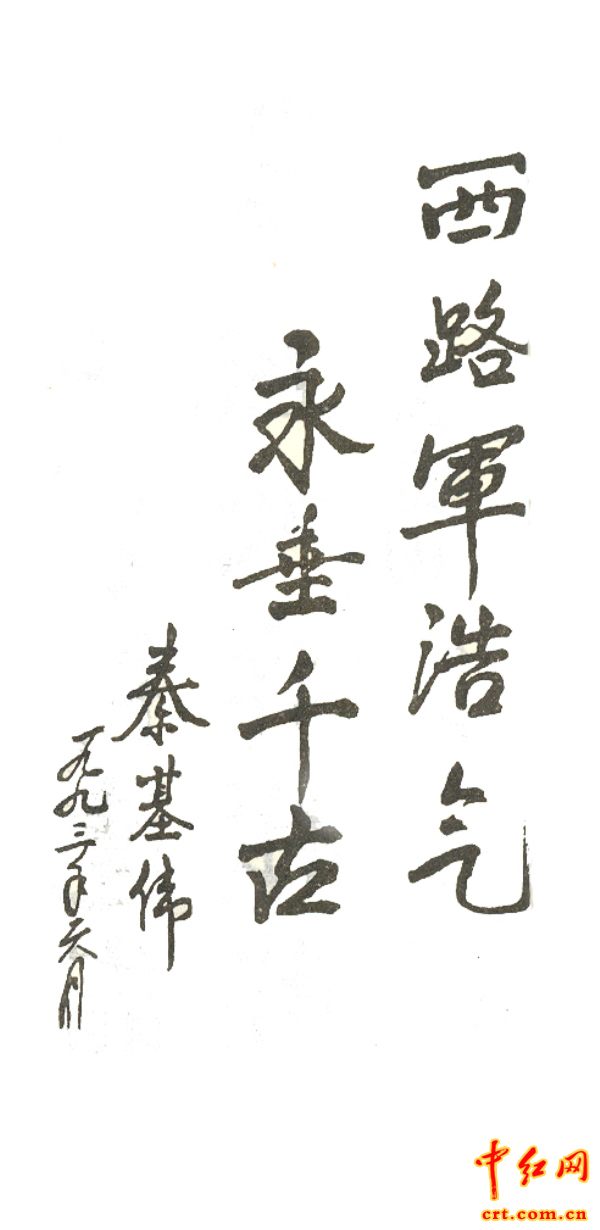 西路軍浩气
永垂千古
秦基伟
一九九三年六月
中红网
crt.com.cn